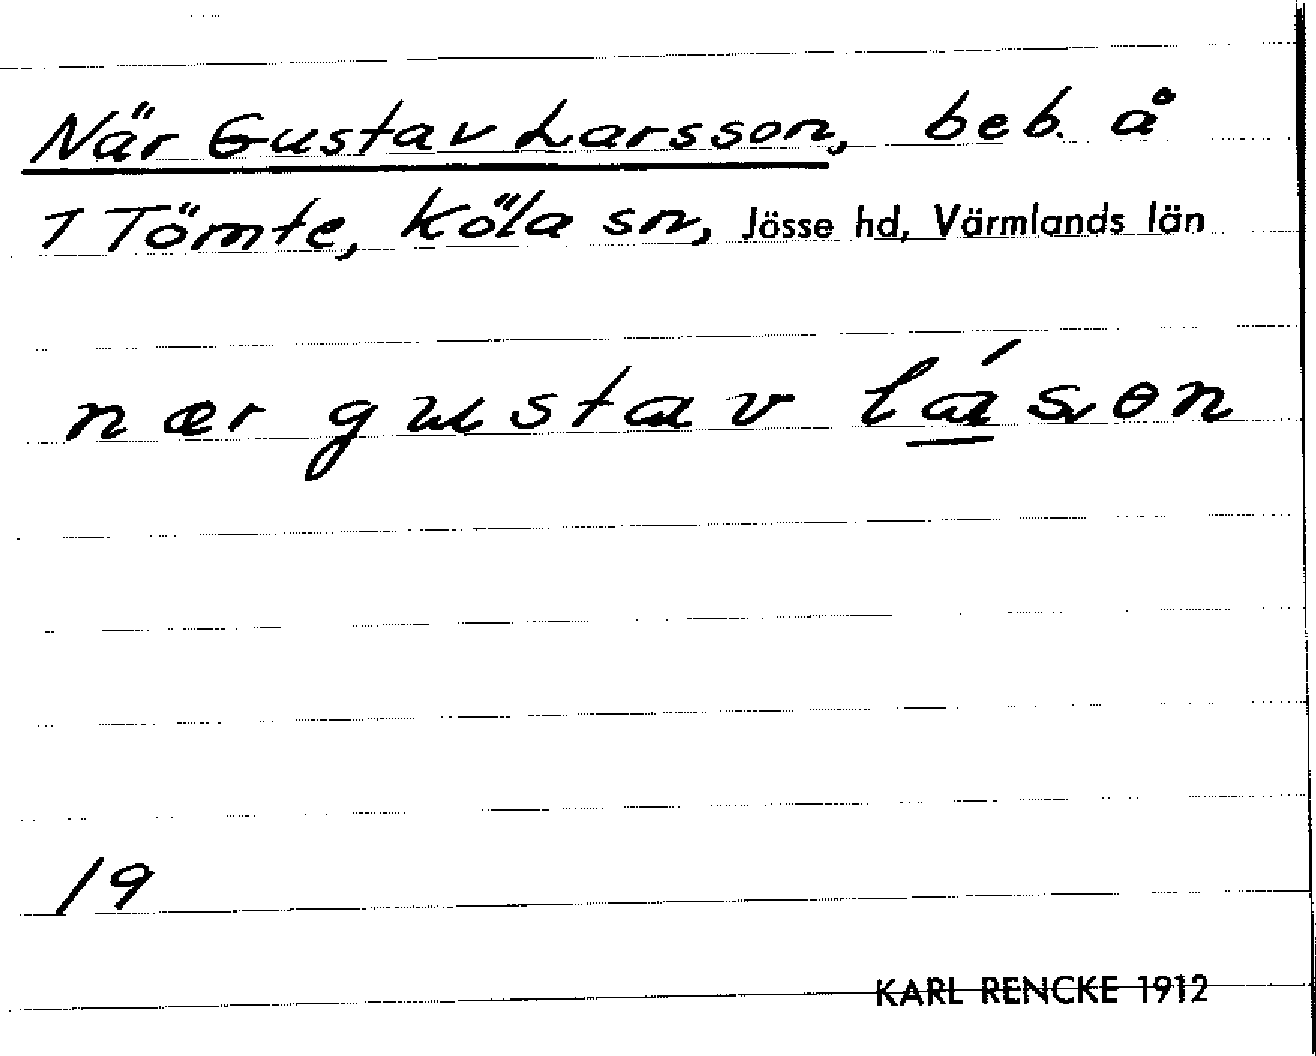 När Gustav Larsson, beb. å
1 Tömte, Köla sn, Jösse hd, Värmlands län
nær gustav lásɵn
19
KARL RENCKE 1912